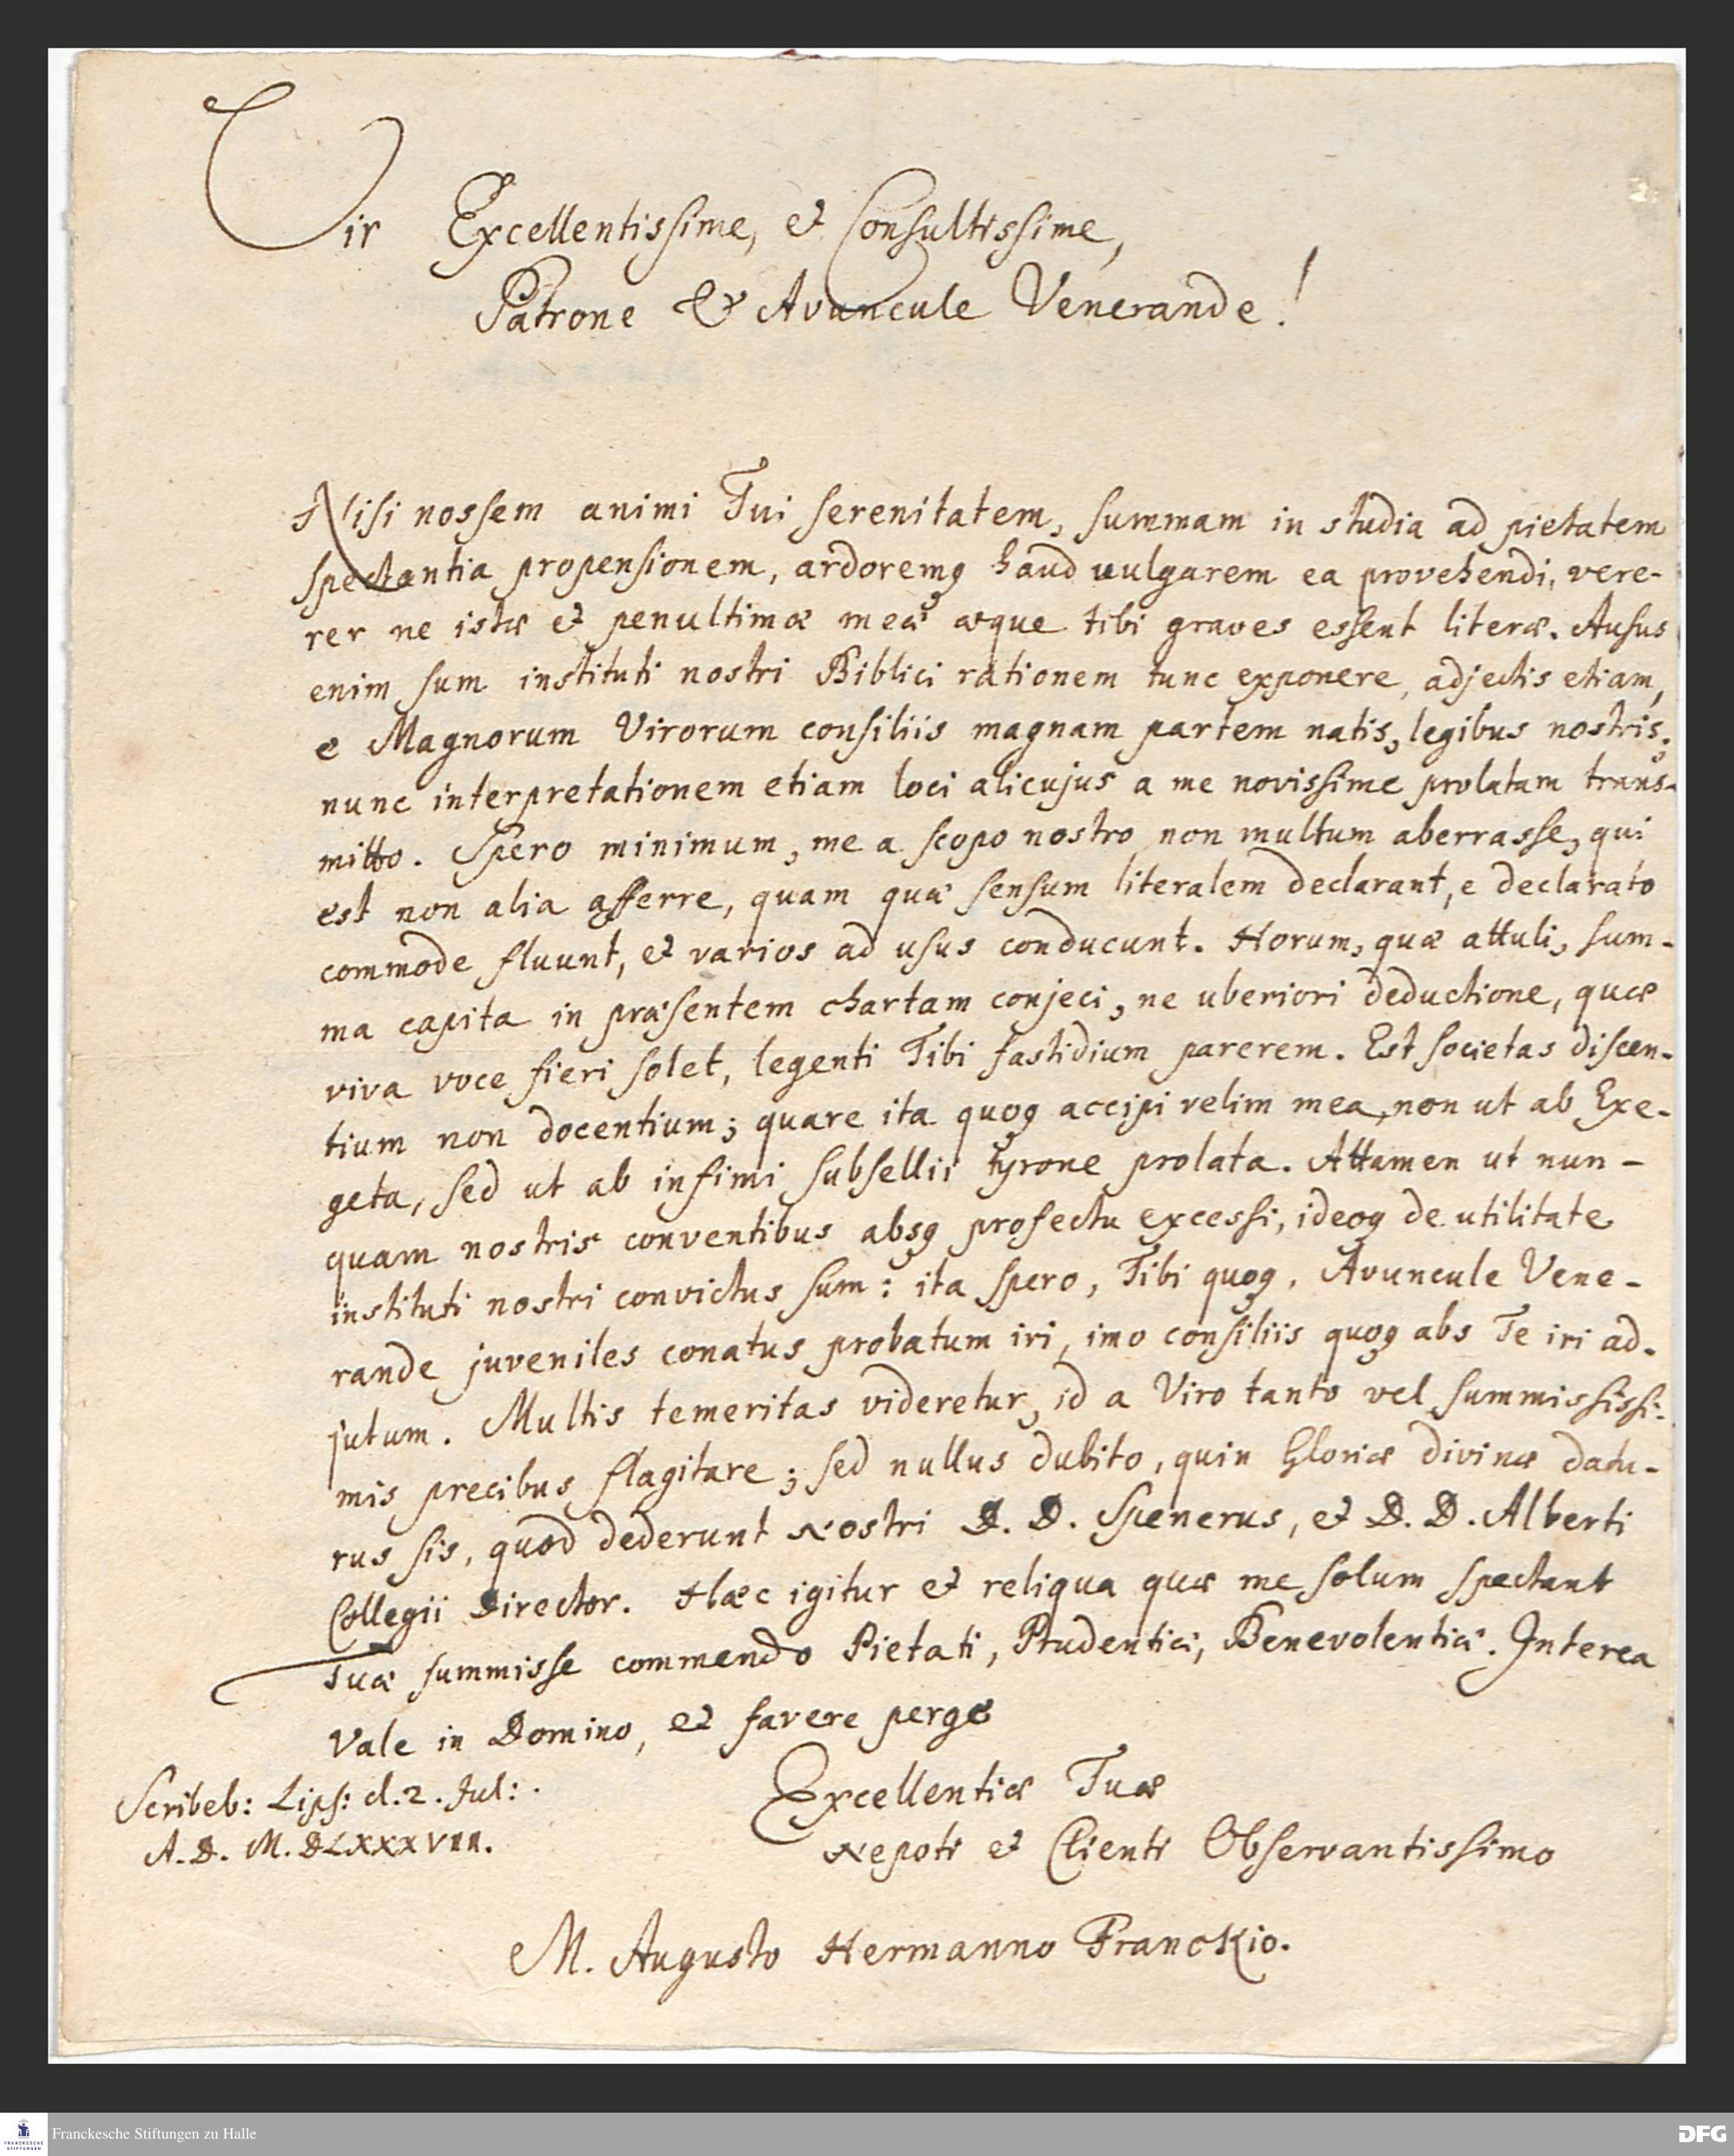 Vir Excellentissime, et Consultissime,
Patrone & Avuncule Venerande!
Nisi nossem animi Tui serenitatem, summam in studia ad pietatem
spectantia propensionem, ardoremq́ haud vulgarem ea provehendi, vere-
rer ne istæ et penultimæ meæ æque tibi graves essent literæ. Ausus
enim sum instituti nostri Biblici rationem tunc exponere, adjectis etiam,
e Magnorum Virorum consiliis magnam partem natis, legibus nostris;
nunc interpretationem etiam loci alicujus a me novissime prolatam trans-
mitto. Spero minimum, me a scopo nostro non multum aberrasse, qui
est non alia afferre, quam quæ sensum literalem declarant, e declarato
commode fluunt, et varios ad usus conducunt. Horum, quæ attuli, sum-
ma capita in præsentem chartam conjeci, ne uberiori deductione, quæ
viva voce fieri solet, legenti Tibi fastidium parerem. Est societas discen-
tium non docentium; quare ita quoq accipi velim mea, non ut ab Exe-
geta, sed ut ab infimi subsellii tyrone prolata. Attamen ut nun-
quam nostris conventibus absq profectu excessi, ideoq de utilitate
instituti nostri convictus sum: ita spero, Tibi quoq, Avuncule Vene-
rande juveniles conatus probatum iri, imo consiliis quoq abs Te iri ad-
jutum. Multis temeritas videretur, id a Viro tanto vel summississi-
mis precibus flagitare; sed nullus dubito, quin Gloriæ divinæ datu-
rus sis, quod dederunt Nostri D. D. Spenerus, et D. D. Alberti
Collegii Director. Hæc igitur et reliqua quæ me solum spectant
Tuæ summisse commendo Pietati, Prudentiæ, Benevolentiæ. Interea
Vale in Domino, et favere perge
Excellentiæ Tuæ
Nepoti et Clienti Observantissimo
M. Augusto Hermanno Franckio.
Scribeb: Lips: d. 2. Jul:.
A. D. M. DLXXXVII.
Franckesche Stiftungen zu Halle
FRANCKESCHE
STIFTUNGEN
DFG